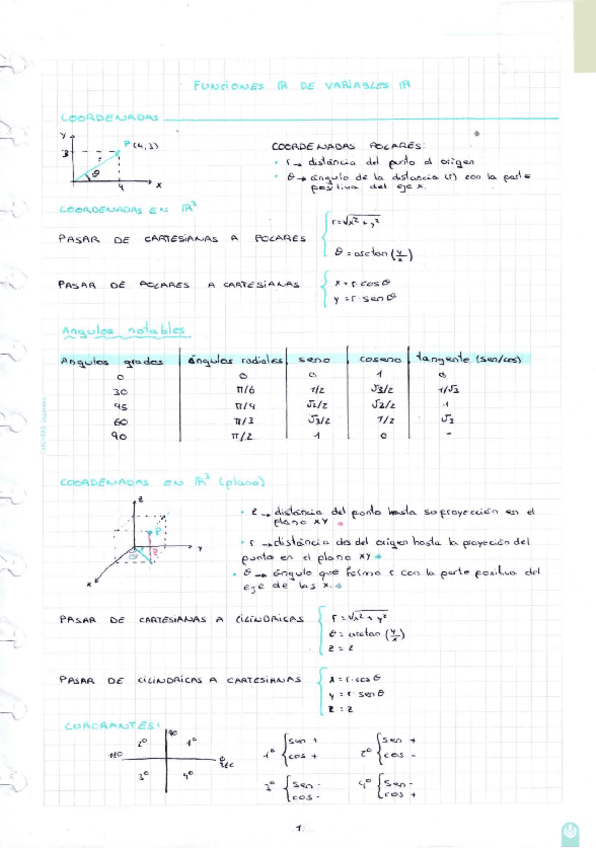 FUNCIONES IR DE VARIABLES IR
COORDENADAS
y
P(4,3)
3
r
θ
4
x
COORDENADAS POLARES:
• r → distáncia del punto al origen
• θ → ángulo de la distáncia (r) con la parte
positiva del eje x.
COORDENADAS EN IR²
PASAR DE CARTESIANAS A POLARES
r=√x²+y²
θ=arctan(y/x)
PASAR DE POLARES A CARTESIANAS
x=r·cosθ
y=r·senθ
Angulos notables
Angulos grados | ángulos radiales | seno | coseno | tangente (sen/cos)
0 | 0 | 0 | 1 | 0
30 | π/6 | 1/2 | √3/2 | 1/√3
45 | π/4 | √2/2 | √2/2 | 1
60 | π/3 | √3/2 | 1/2 | √3
90 | π/2 | 1 | 0 | -
COORDENADAS EN IR³ (plano)
z
P
y
x
• z → distáncia del punto hasta su proyección en el
plano xy
• r → distáncia del origen hasta la proyección del
punto en el plano xy
• θ → ángulo que forma r con la parte positiva del
eje de las x.
PASAR DE CARTESIANAS A CILÍNDRICAS
r=√x²+y²
θ=arctan(y/x)
z=z
PASAR DE CILINDRICAS A CARTESIANAS
x=r·cosθ
y=r·senθ
z=z
CUADRANTES:
90
2º 1º
180
0
3º 4º
1º sen + cos +
2º sen + cos -
3º sen - cos -
4º sen - cos +
1